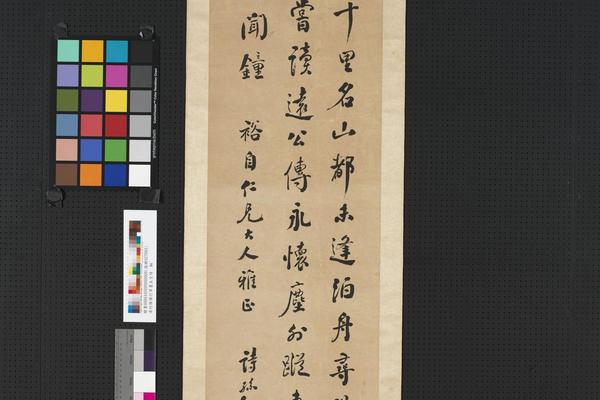 千里名山都未逢泊舟尋
嘗讀遠公傳永懷塵外蹤
聞鐘 裕自仁兄大人雅正 詩孫